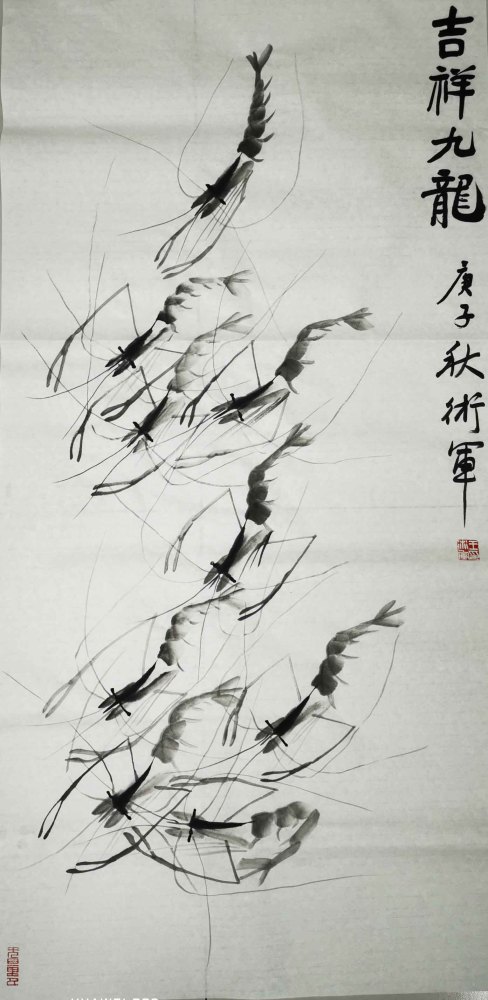 吉祥九龍
庚子秋術軍